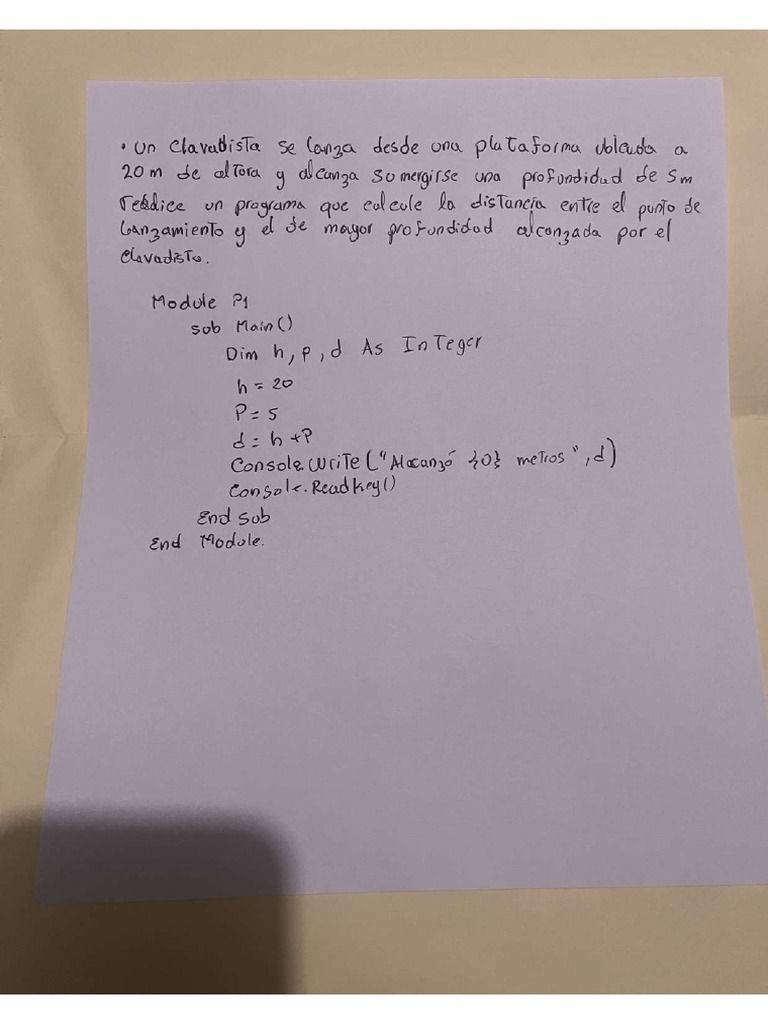 • Un clavadista se lanza desde una plataforma ubicada a
20 m de altura y alcanza sumergirse una profundidad de 5m
realice un programa que calcule la distancia entre el punto de
lanzamiento y el de mayor profundidad alcanzada por el
clavadista.
Module P1
sub Main()
Dim h, p, d As Integer
h = 20
P = 5
d = h + P
Console.Write("Alcanzó {0} metros", d)
Console.ReadKey()
End Sub
End Module.